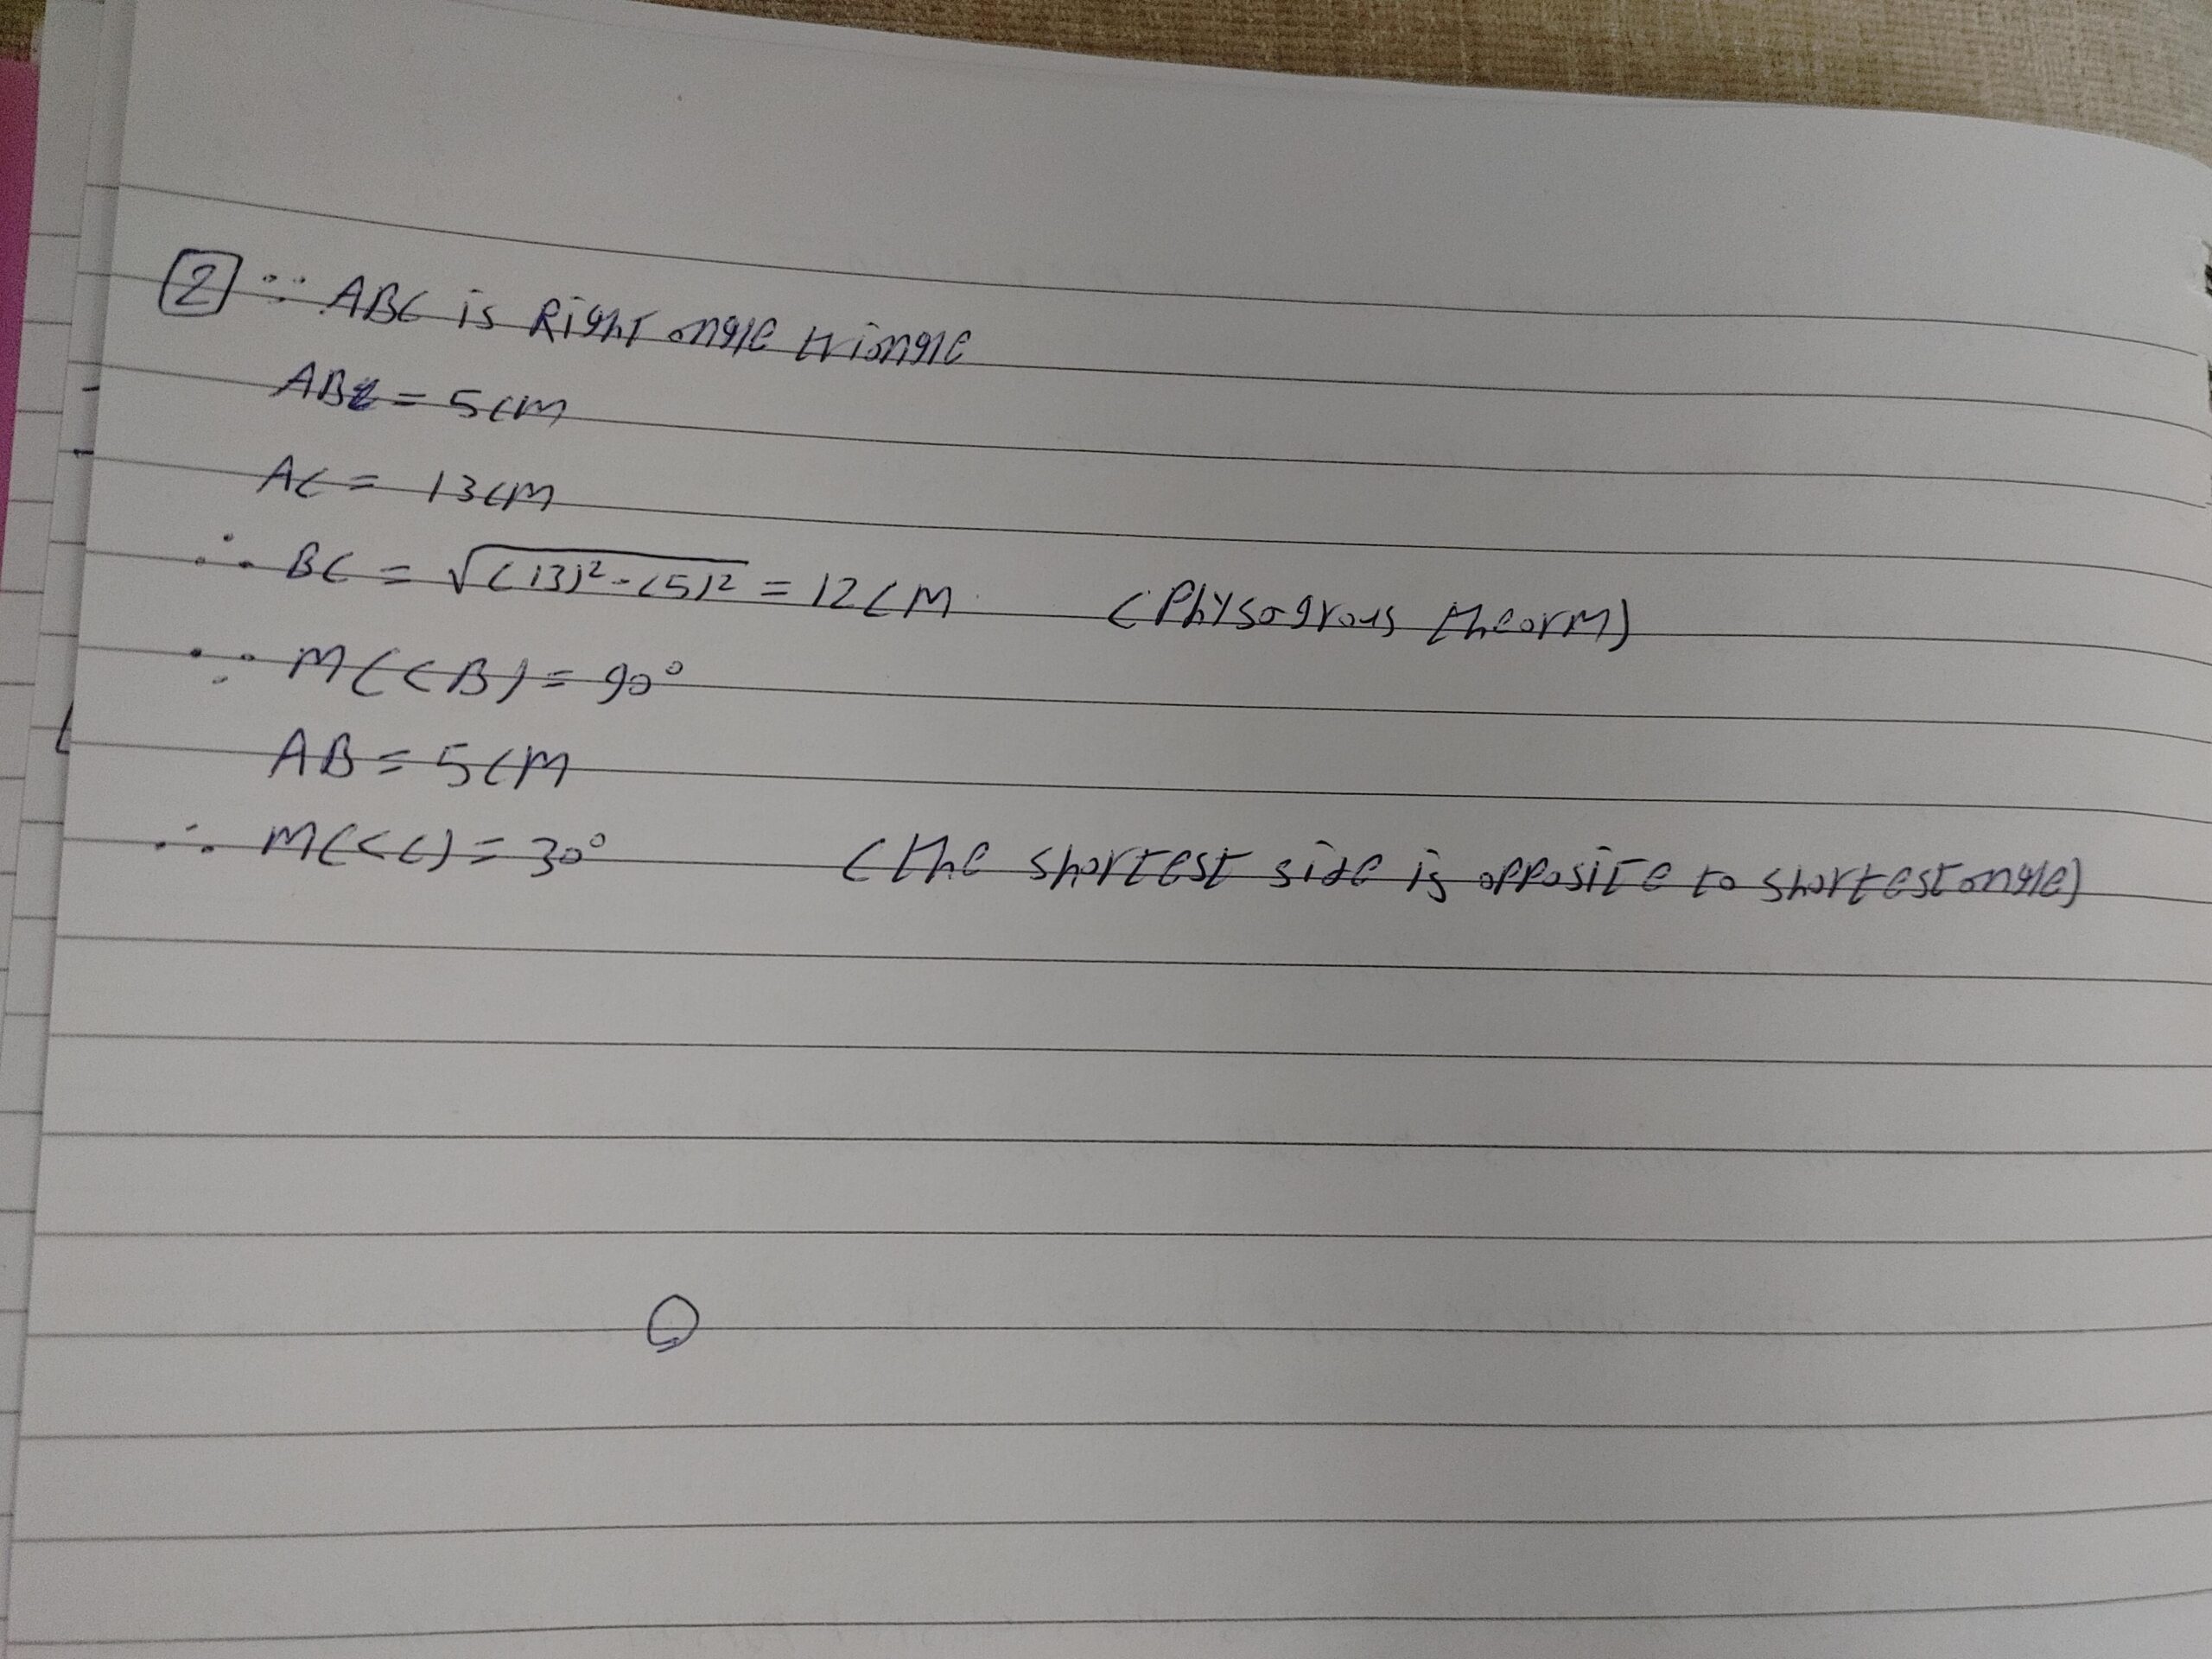 2 ∵ ABC is Right angle triangle
AB = 5 CM
AC = 13 CM
∴ BC = √(13)² - (5)² = 12 CM (Physograus theorm)
∵ M(<B) = 90°
AB = 5 CM
∴ M(<C) = 30° (the shortest side is opposite to shortest angle)